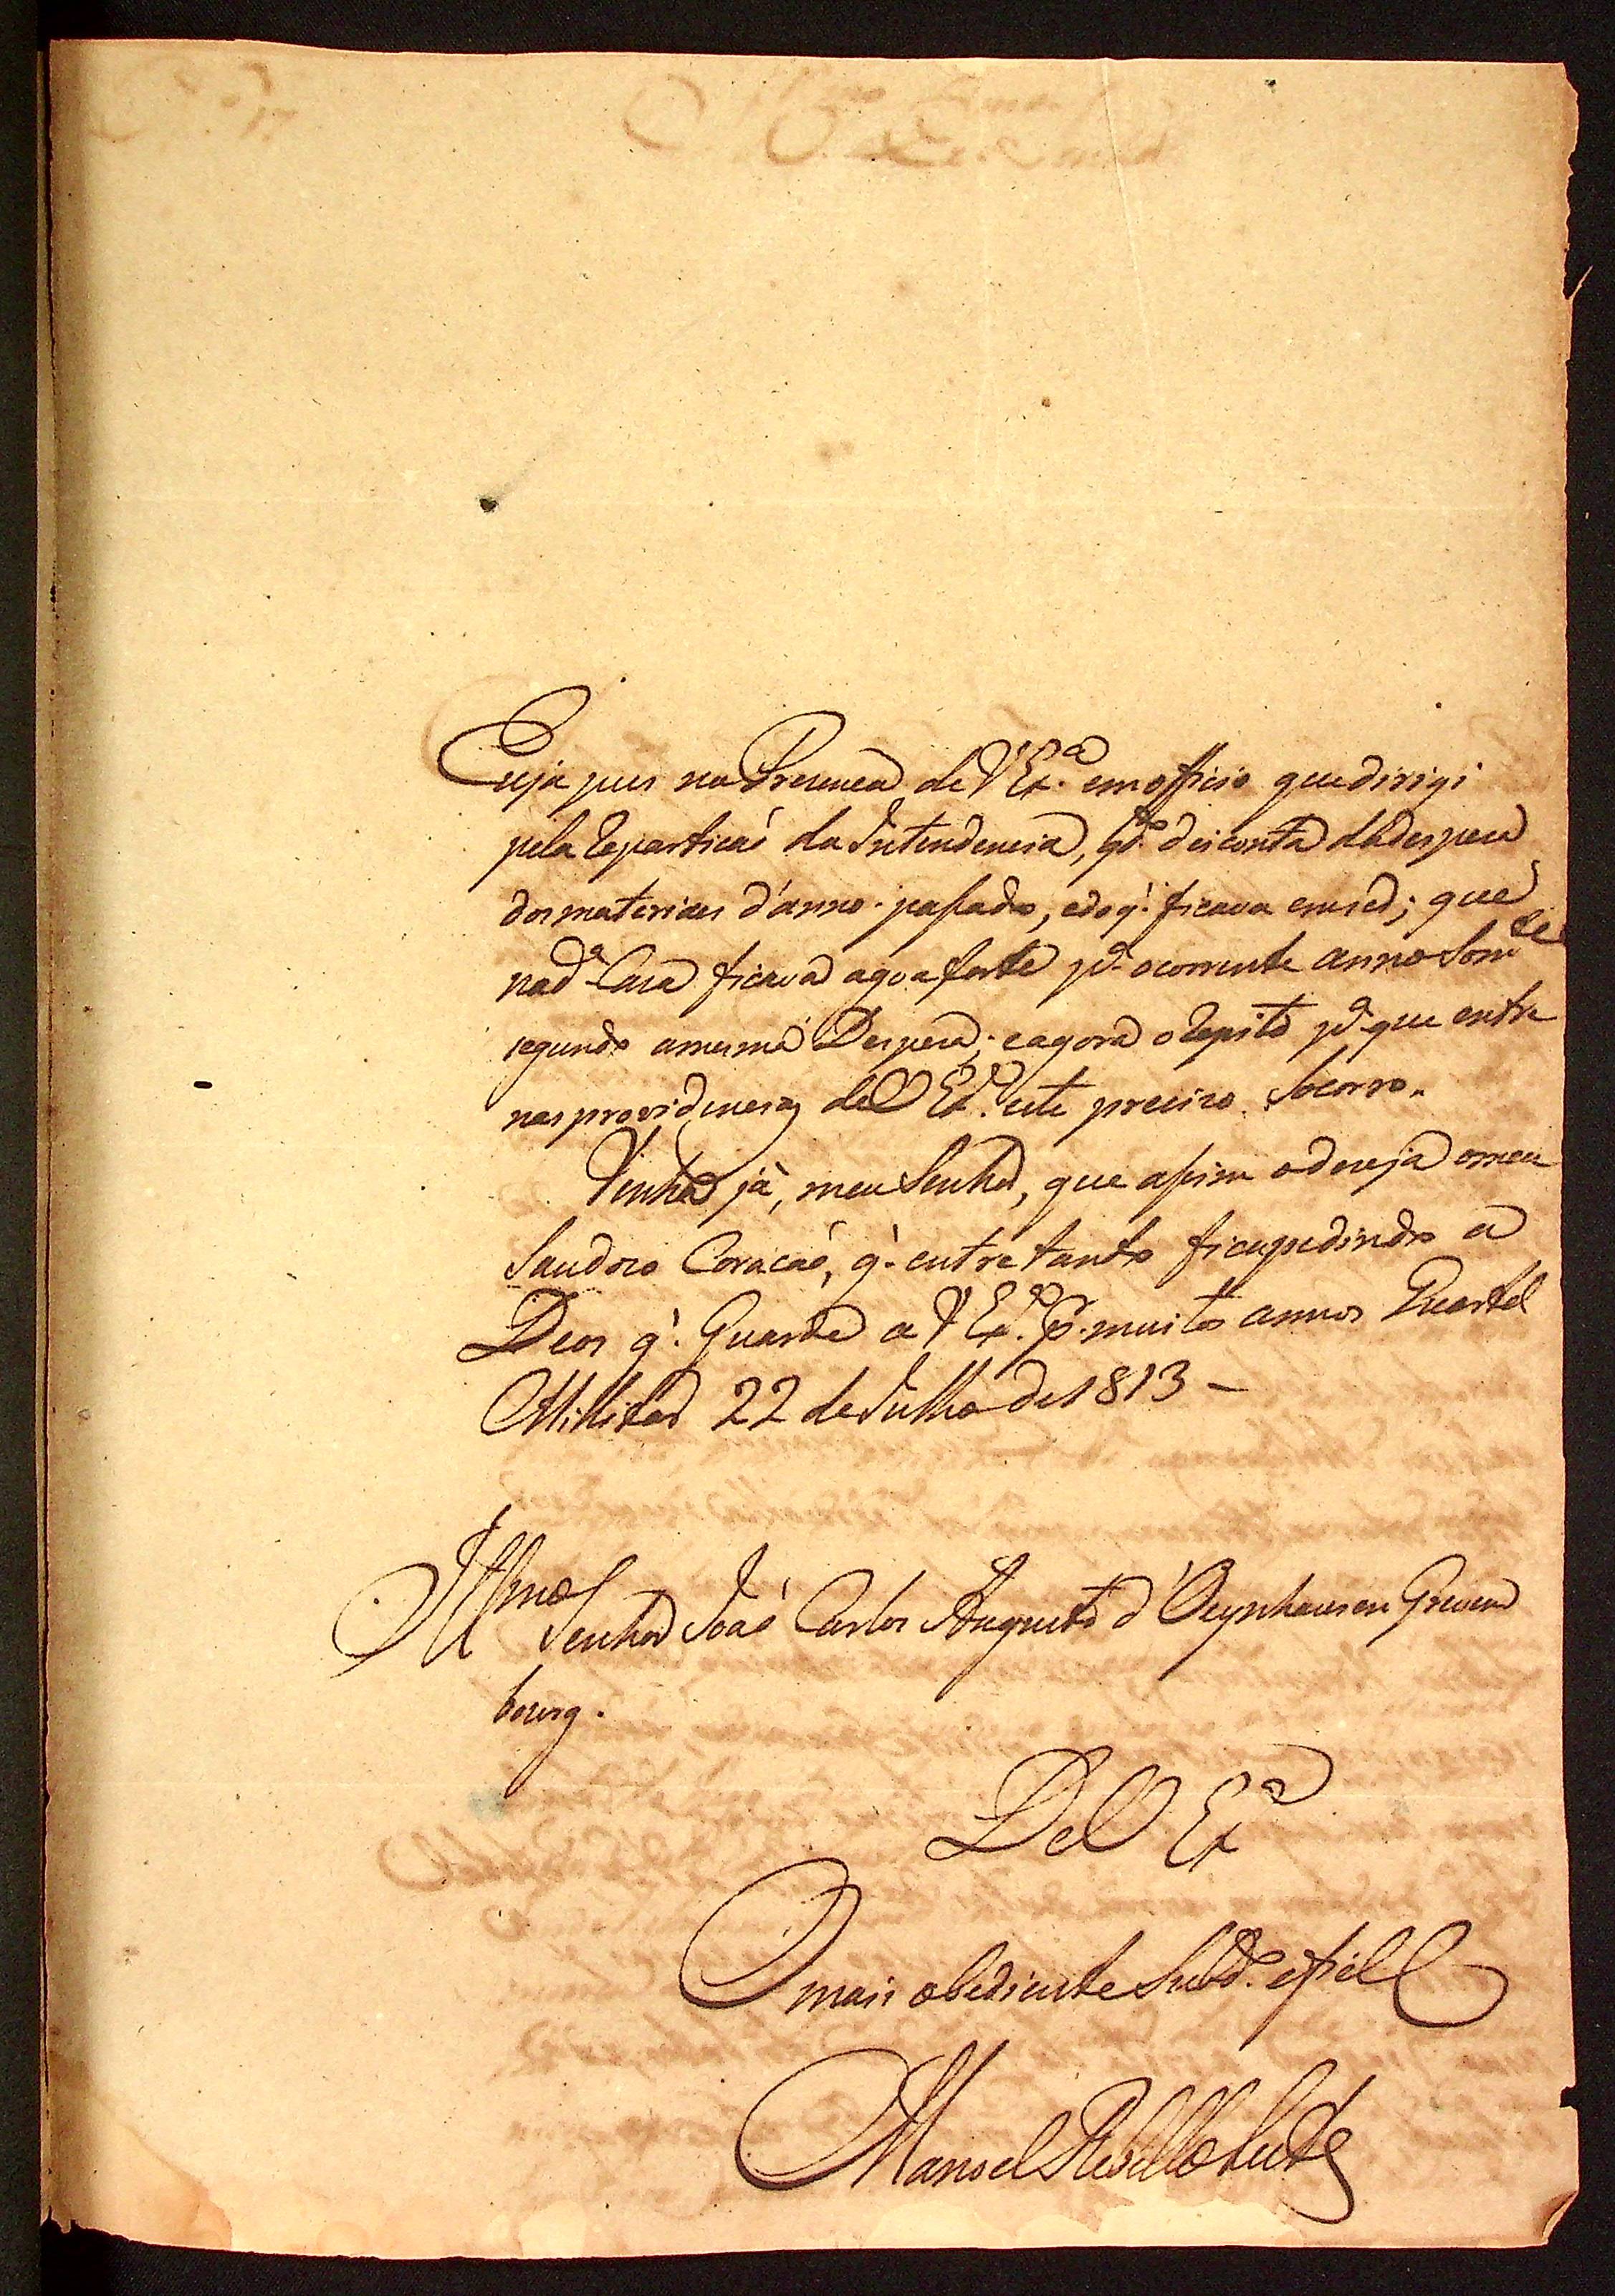 Eu ja pus na Presença de V Ex.ª em officio que dirigi
pela Repartiçaõ da Intendencia, q.do dei conta da despeza
dos materiaes d'anno passado, e do q̃ ficava em sed; que
na d.ª Caza ficava agoa forte p.ª o corrente anno Som.te
segundo a mesma Despeza; e agora o repito p.ª que entre
nas providencias de V Ex.ª este preciso Socorro.
Venha já, meu Senhor, que assim o dezeja o meu
Saudozo Coraçaõ, q̃ entretanto fica pedindo a
Deos q̃ Guarde a V Ex.ª p.r muitos annos Quartel
Militar 22 de Julho de 1813 –
Ill.mo
Senhor Joaõ Carlos Augusto d'Oeynhausen Greven
bourg.
De V Ex.ª
O mais obediente Subd.º e fiel
Manoel Rebello Leite